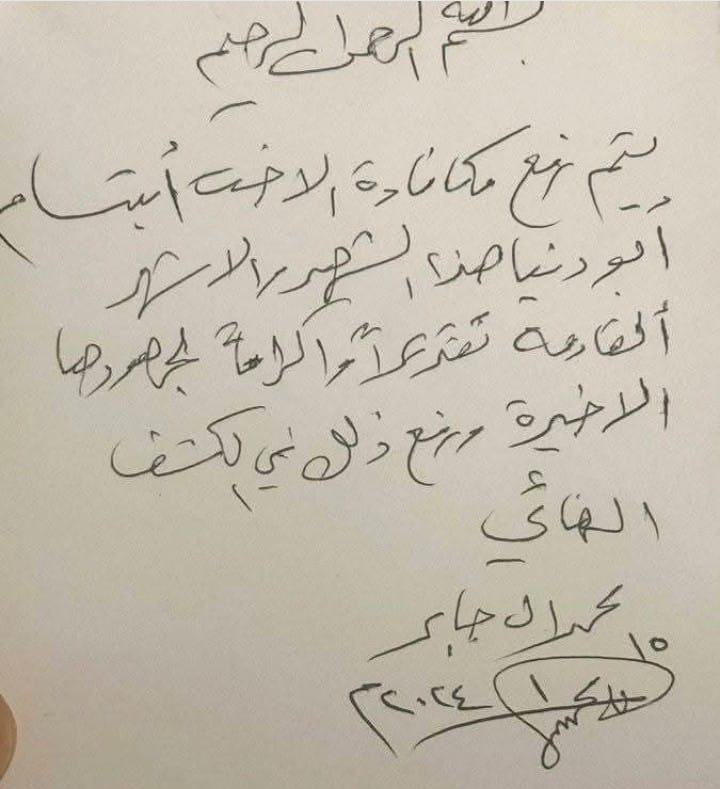 بسم الله الرحمن الرحيم
يتم رفع مكافاءة الاخت أبتسام
أبو دنيا هذا الشهر والاشهر
القادمة تقديراً وأكراماً لجهودها
الاخيرة ورفع ذلك في لكشف
النهائي
محمد ال جابر
١٥
١ ٢٠٢٤م